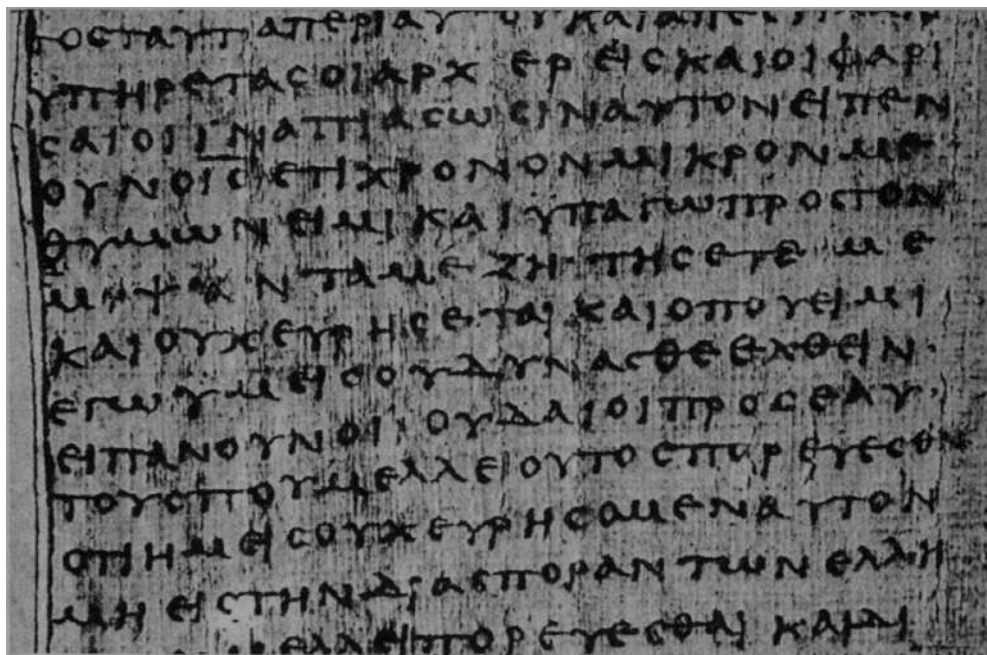 τοϲταυταπεριαυτουκαιαπεϲτειλαν
υπηρεταϲοιαρχερειϲκαιοιφαρι
ϲαιοιιναπιαϲωϲιναυτονειπεν
ουνοι̅ϲ̅ετιχρονονμικρονμε
θυμωνειμικαιυπαγωπροϲτον
μψανταμεζητηϲετεμε
καιουχευρηϲεταικαιοπουειμι
εγωυμειϲουδυναϲθεελθειν·
ειπανουνοιιουδαιοιπροϲεαυ
τουϲπουμελλειουτοϲπορευεϲθαι
οτιημειϲουχευρηϲομεναυτον
μηειϲτηνδιαϲποραντωνελλη
ελλειπορευεϲθαικαιδι